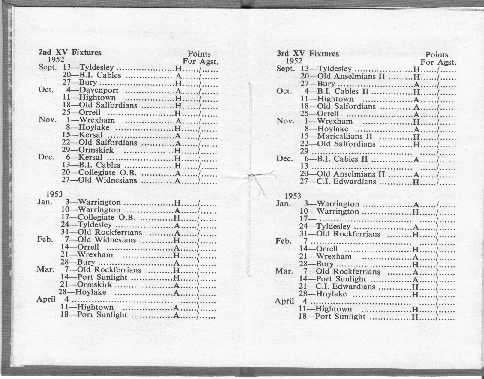 2nd XV Fixtures Points
1952 For Agst.
Sept. 13—Tyldesley H
20—B.I. Cables A
27—Bury H
Oct. 4—Davenport A
11—Hightown H
18—Old Salfordians H
25—Orrell H
Nov. 1—Wrexham A
8—Hoylake H
15—Kersal A
22—Old Salfordians A
29—Ormskirk H
Dec. 6—Kersal H
13—B.I. Cables H
20—Collegiate O.B. A
27—Old Widnesians A
1953
Jan. 3—Warrington H
10—Warrington A
17—Collegiate O.B. H
24—Tyldesley A
31—Old Rockferrians A
Feb. 7—Old Widnesians H
14—Orrell A
21—Wrexham H
28—Bury A
Mar. 7—Old Rockferrians H
14—Port Sunlight H
21—Ormskirk A
28—Hoylake A
April 4
11—Hightown A
18—Port Sunlight A
3rd XV Fixtures Points
1952 For Agst.
Sept. 13—Tyldesley H
20—Old Anselmians II H
27—Bury A
Oct. 4—B.I. Cables II H
11—Hightown A
18—Old Salfordians A
25—Orrell A
Nov. 1—Wrexham H
8—Hoylake A
15—Maricolians II H
22—Old Salfordians H
29
Dec. 6—B.I. Cables II A
13
20—Old Anselmians II A
27—C.I. Edwardians H
1953
Jan. 3—Warrington A
10—Warrington H
17—
24—Tyldesley A
31—Old Rockferrians H
Feb. 7
14—Orrell H
21—Wrexham A
28—Bury H
Mar. 7—Old Rockferrians A
14—Port Sunlight A
21—C.I. Edwardians H
28—Hoylake H
April 4
11—Hightown H
18—Port Sunlight H